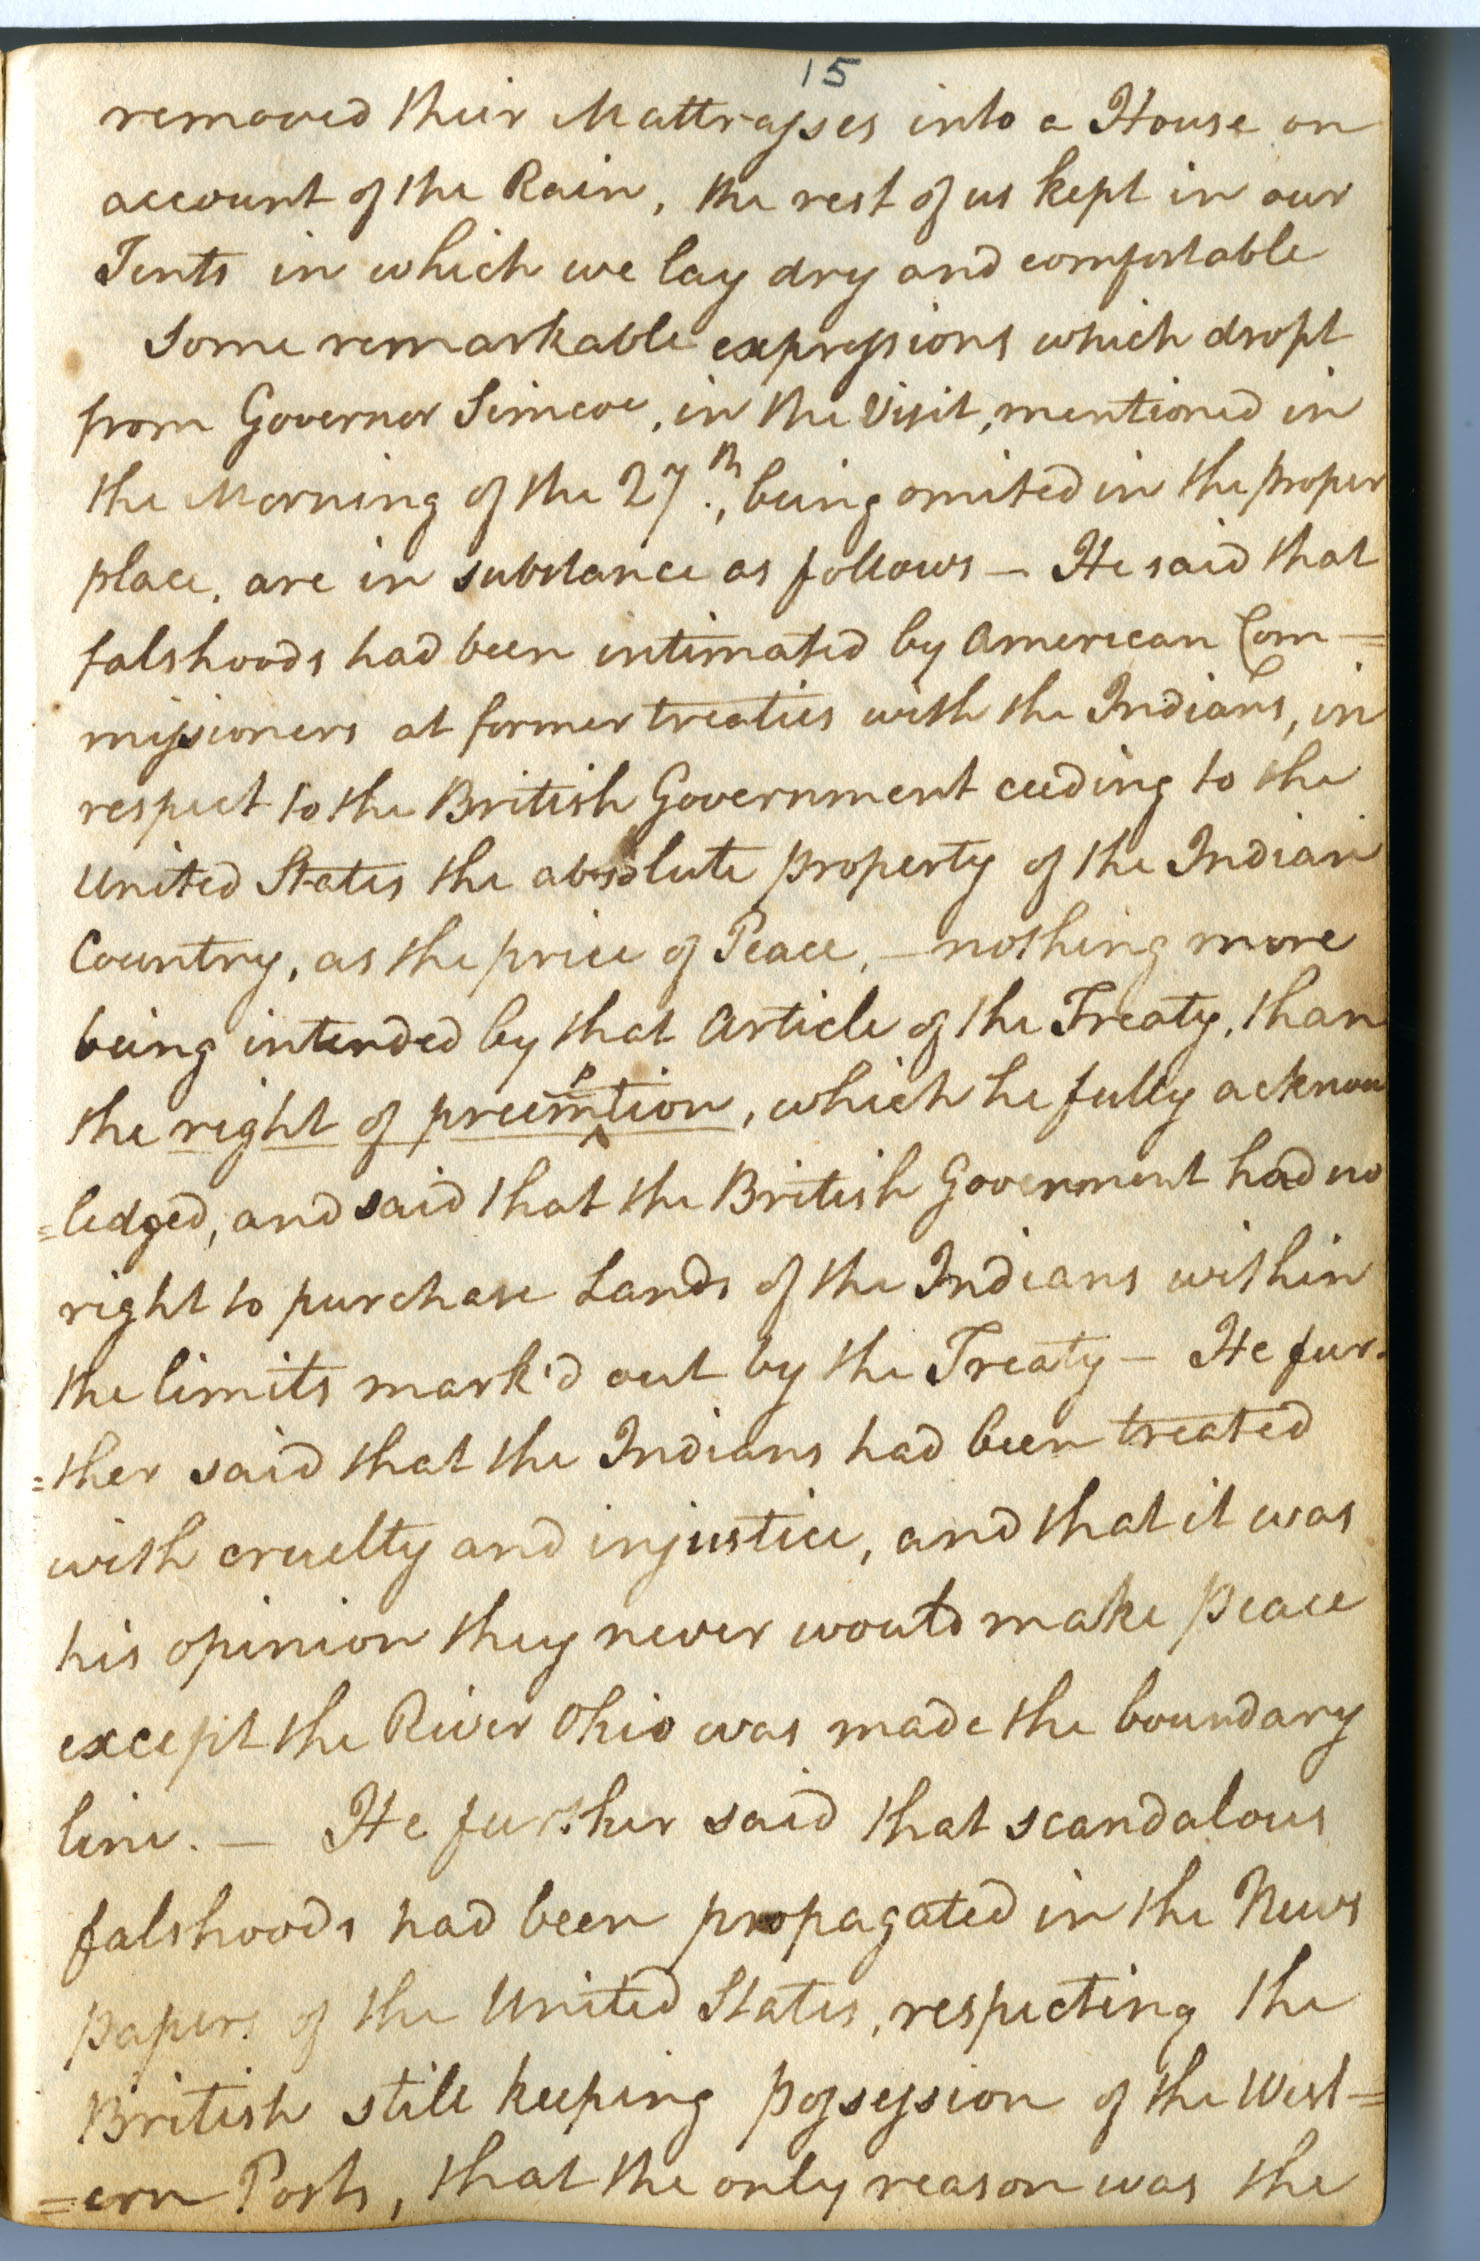 15
removed their Mattrasses into a House on
account of the Rain, the rest of us kept in our
Tents in which we lay dry and comfortable
Some remarkable expressions which dropt
from Governor Simcoe, in the Visit, mentioned in
the Morning of the 27.th, being omited in the proper
place, are in substance as follows — He said that
falshoods had been intimated by American Com=
missioners at former treaties with the Indians, in
respect to the British Government ceeding to the
United States the absolute property of the Indian
Country, as the price of Peace, — nothing more
being intended by that Article of the Treaty, than
the right of preemption, which he fully acknow
=ledged, and said that the British Government had no
right to purchase Lands of the Indians within
the limits mark'd out by the Treaty — He fur=
=ther said that the Indians had been treated
with cruelty and injustice, and that it was
his opinion they never would make peace
except the River Ohio was made the boundary
line. — He further said that scandalous
falshoods had been propagated in the News
papers of the United States, respecting the
British still keeping possession of the West=
=ern Posts, that the only reason was the